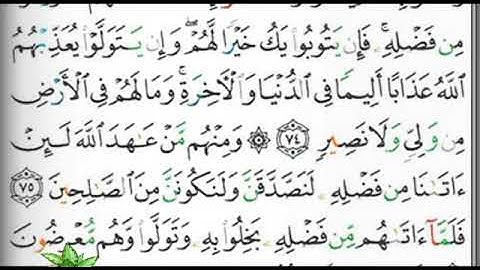 مِن فَضْلِهِۦۚ فَإِن يَتُوبُوا۟ يَكُ خَيْرًا لَّهُمْۖ وَإِن يَتَوَلَّوْا۟ يُعَذِّبْهُمُ
ٱللَّهُ عَذَابًا أَلِيمًا فِى ٱلدُّنْيَا وَٱلْأَخِرَةِۚ وَمَا لَهُمْ فِى ٱلْأَرْضِ
مِن وَلِىٍّ وَلَا نَصِيرٍ ٧٤ ۞ وَمِنْهُم مَّنْ عَٰهَدَ ٱللَّهَ لَئِنْ
ءَاتَىٰنَا مِن فَضْلِهِۦ لَنَصَّدَّقَنَّ وَلَنَكُونَنَّ مِنَ ٱلصَّٰلِحِينَ ٧٥
فَلَمَّآ ءَاتَىٰهُم مِّن فَضْلِهِۦ بَخِلُوا۟ بِهِۦ وَتَوَلَّوا۟ وَّهُم مُّعْرِضُونَ